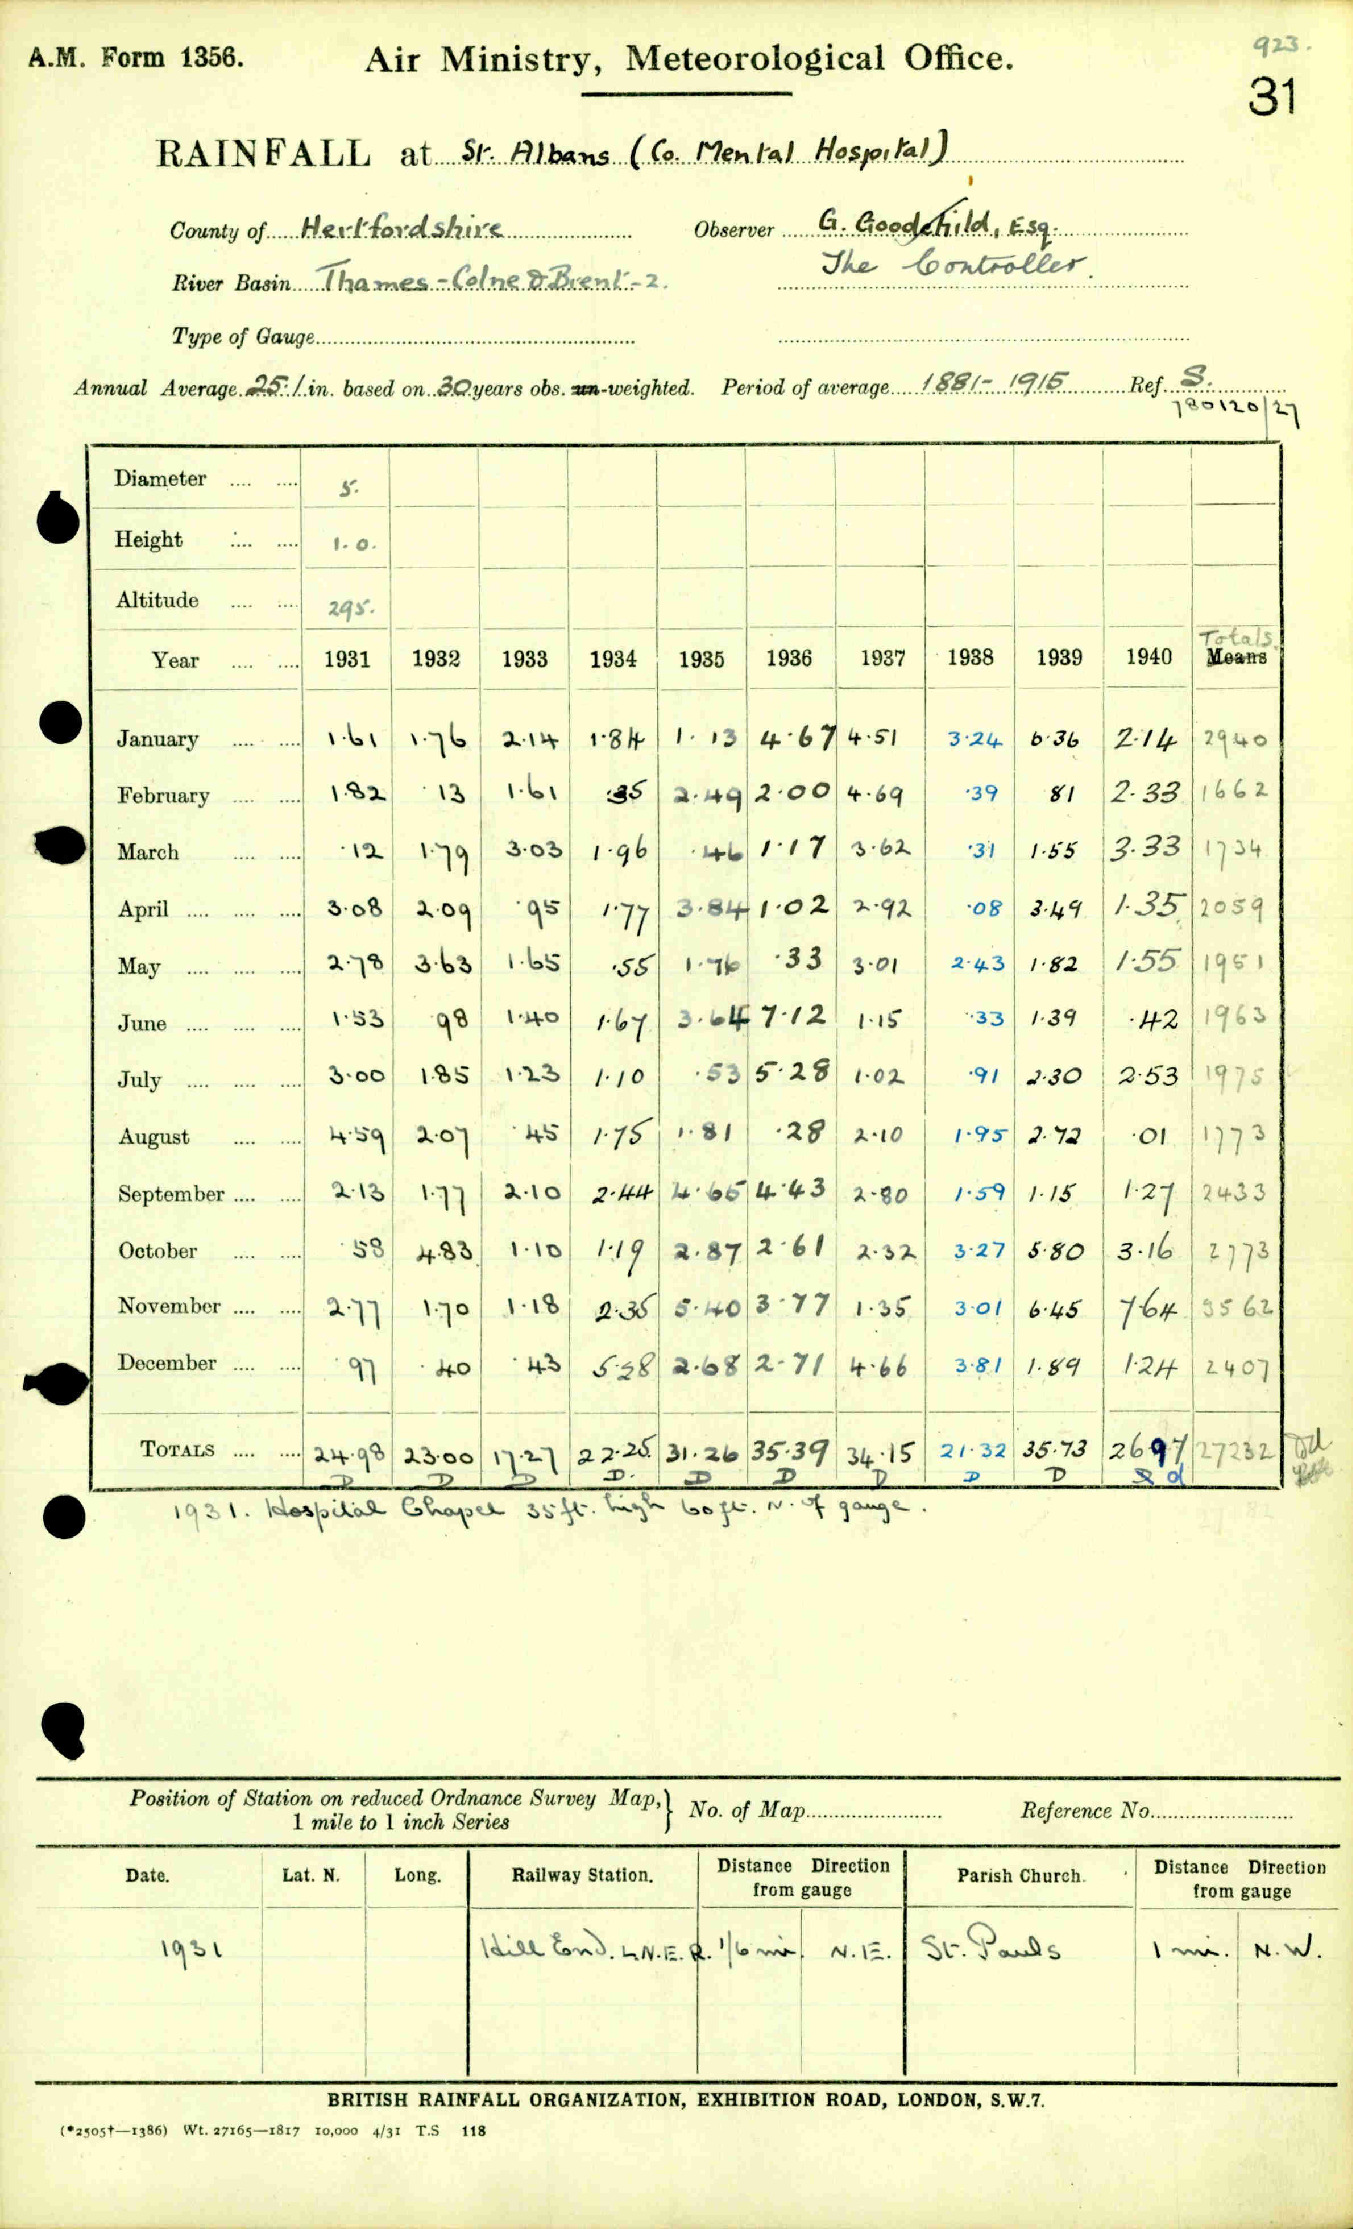 923.
A.M. Form 1356. Air Ministry, Meteorological Office. 31
RAINFALL at St. Albans (Co. Mental Hospital)
County of Hertfordshire Observer G. Goodchild, Esq.
The Controller.
River Basin Thames - Colne & Brent - 2.
Type of Gauge
Annual Average 25.1 in. based on 30 years obs. un-weighted. Period of average 1881 - 1915 Ref. S.
780120/27
Diameter 5.
Height 1.0.
Altitude 295.
Totals
Year 1931 1932 1933 1934 1935 1936 1937 1938 1939 1940 Means
January 1.61 1.76 2.14 1.84 1.13 4.67 4.51 3.24 6.36 2.14 2940
February 1.82 .13 1.61 .35 2.49 2.00 4.69 .39 81 2.33 1662
March .12 1.79 3.03 1.96 .46 1.17 3.62 .31 1.55 3.33 1734
April 3.08 2.09 .95 1.77 3.84 1.02 2.92 .08 3.49 1.35 2059
May 2.78 3.63 1.65 .55 1.76 .33 3.01 2.43 1.82 1.55 1951
June 1.53 .98 1.40 1.67 3.64 7.12 1.15 .33 1.39 .42 1963
July 3.00 1.85 1.23 1.10 .53 5.28 1.02 .91 2.30 2.53 1975
August 4.59 2.07 .45 1.75 1.81 .28 2.10 1.95 2.72 .01 1773
September 2.13 1.77 2.10 2.44 4.65 4.43 2.80 1.59 1.15 1.27 2433
October .58 4.83 1.10 1.19 2.87 2.61 2.32 3.27 5.80 3.16 2773
November 2.77 1.70 1.18 2.35 5.40 3.77 1.35 3.01 6.45 7.64 3562
December .97 .40 .43 5.28 2.68 2.71 4.66 3.81 1.89 1.24 2407
TOTALS 24.98 23.00 17.27 22.25 31.26 35.39 34.15 21.32 35.73 26.97 27232
D D D D. D D D D D d
1931. Hospital Chapel 35ft. high 60ft. N. of gauge.
Position of Station on reduced Ordnance Survey Map, 1 mile to 1 inch Series } No. of Map Reference No.
Date. Lat. N. Long. Railway Station. Distance Direction from gauge Parish Church. Distance Direction from gauge
1931 Hill End. L.N.E.R. 1/6 mi. N.E. St. Pauls 1 mi. N.W.
BRITISH RAINFALL ORGANIZATION, EXHIBITION ROAD, LONDON, S.W.7.
(*2505†—1386) Wt. 27165—1817 10,000 4/31 T.S 118